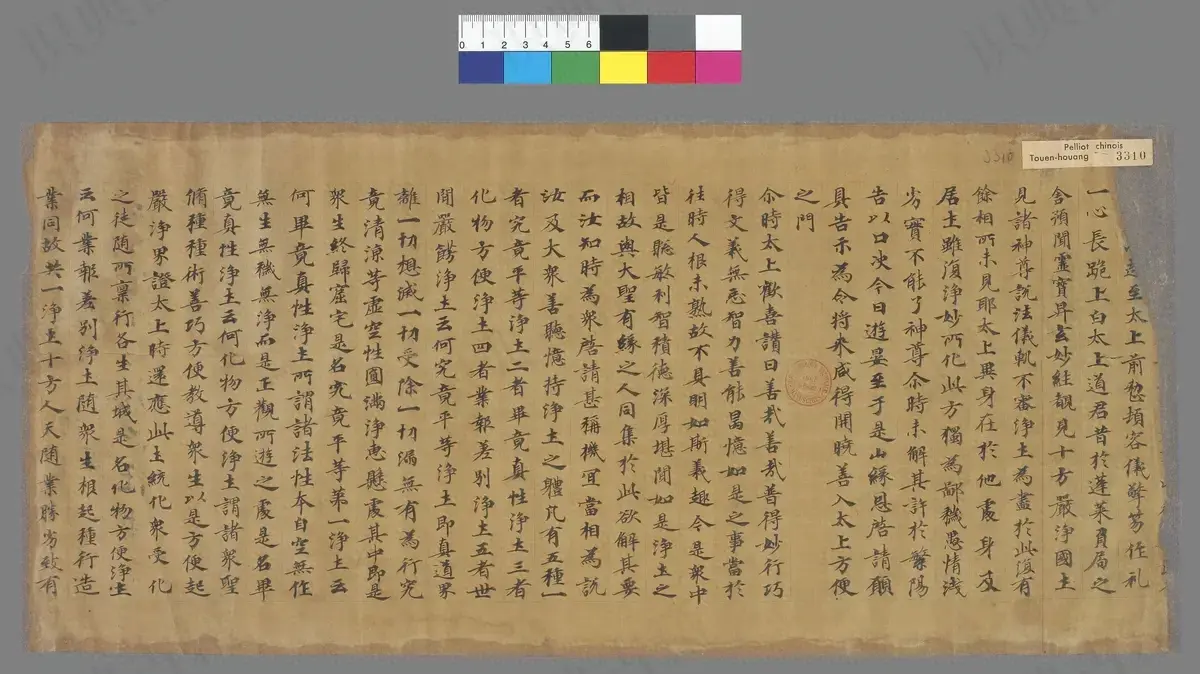 0 1 2 3 4 5 6
3310
Pelliot chinois
Touen-houang 3310
至太上前整頓容儀擎芴作礼
一心長跪上白太上道君昔於蓬萊貟局之
舍預聞靈寳昇玄妙經覩見十方嚴淨國土
見諸神尊説法儀軌不審淨土為盡於此復有
餘相所未見耶太上興身在於他處身及
居土雖復淨妙所化此方獨為鄙穢愚情淺
劣實不能了神尊尒時未解其許於繁陽
告以口次今日遊晏至于是山緣恩啓請願
具告示為令将来咸得開曉善入太上方便
之門
尒時太上歡喜讃曰善哉善哉普得妙行巧
得文義無忘智力善能昌憶如是之事當於
往時人根未熟故不具明如斯義趣今是衆中
皆是聦敏利智積徳深厚堪聞如是淨土之
相故與大聖有緣之人同集於此欲解其要
而汝知時為衆啓請甚稱機冝當相為説
汝及大衆善聽憶持淨土之體凢有五種一
者究竟平等淨土二者畢竟真性淨土三者
化物方便淨土四者業報差别淨土五者世
間嚴餝淨土云何究竟平等淨土即真道界
離一切想滅一切受除一切漏無有為行究
竟清涼等虚空性圓滿淨恵懸處其中即是
衆生終歸窟宅是名究竟平等第一淨土云
何畢竟真性淨土所謂諸法性本自空無作
無生無穢無淨而是正觀所遊之處是名畢
竟真性淨土云何化物方便淨土謂諸衆聖
脩種種術善巧方便教導衆生以是方便起
嚴淨界證太上時運應此土統化衆受化
之徒随所稟行各生其城是名化物方便淨土
云何業報差别淨土随衆生相起種行造
業同故共一淨土十方人天随業勝劣致有